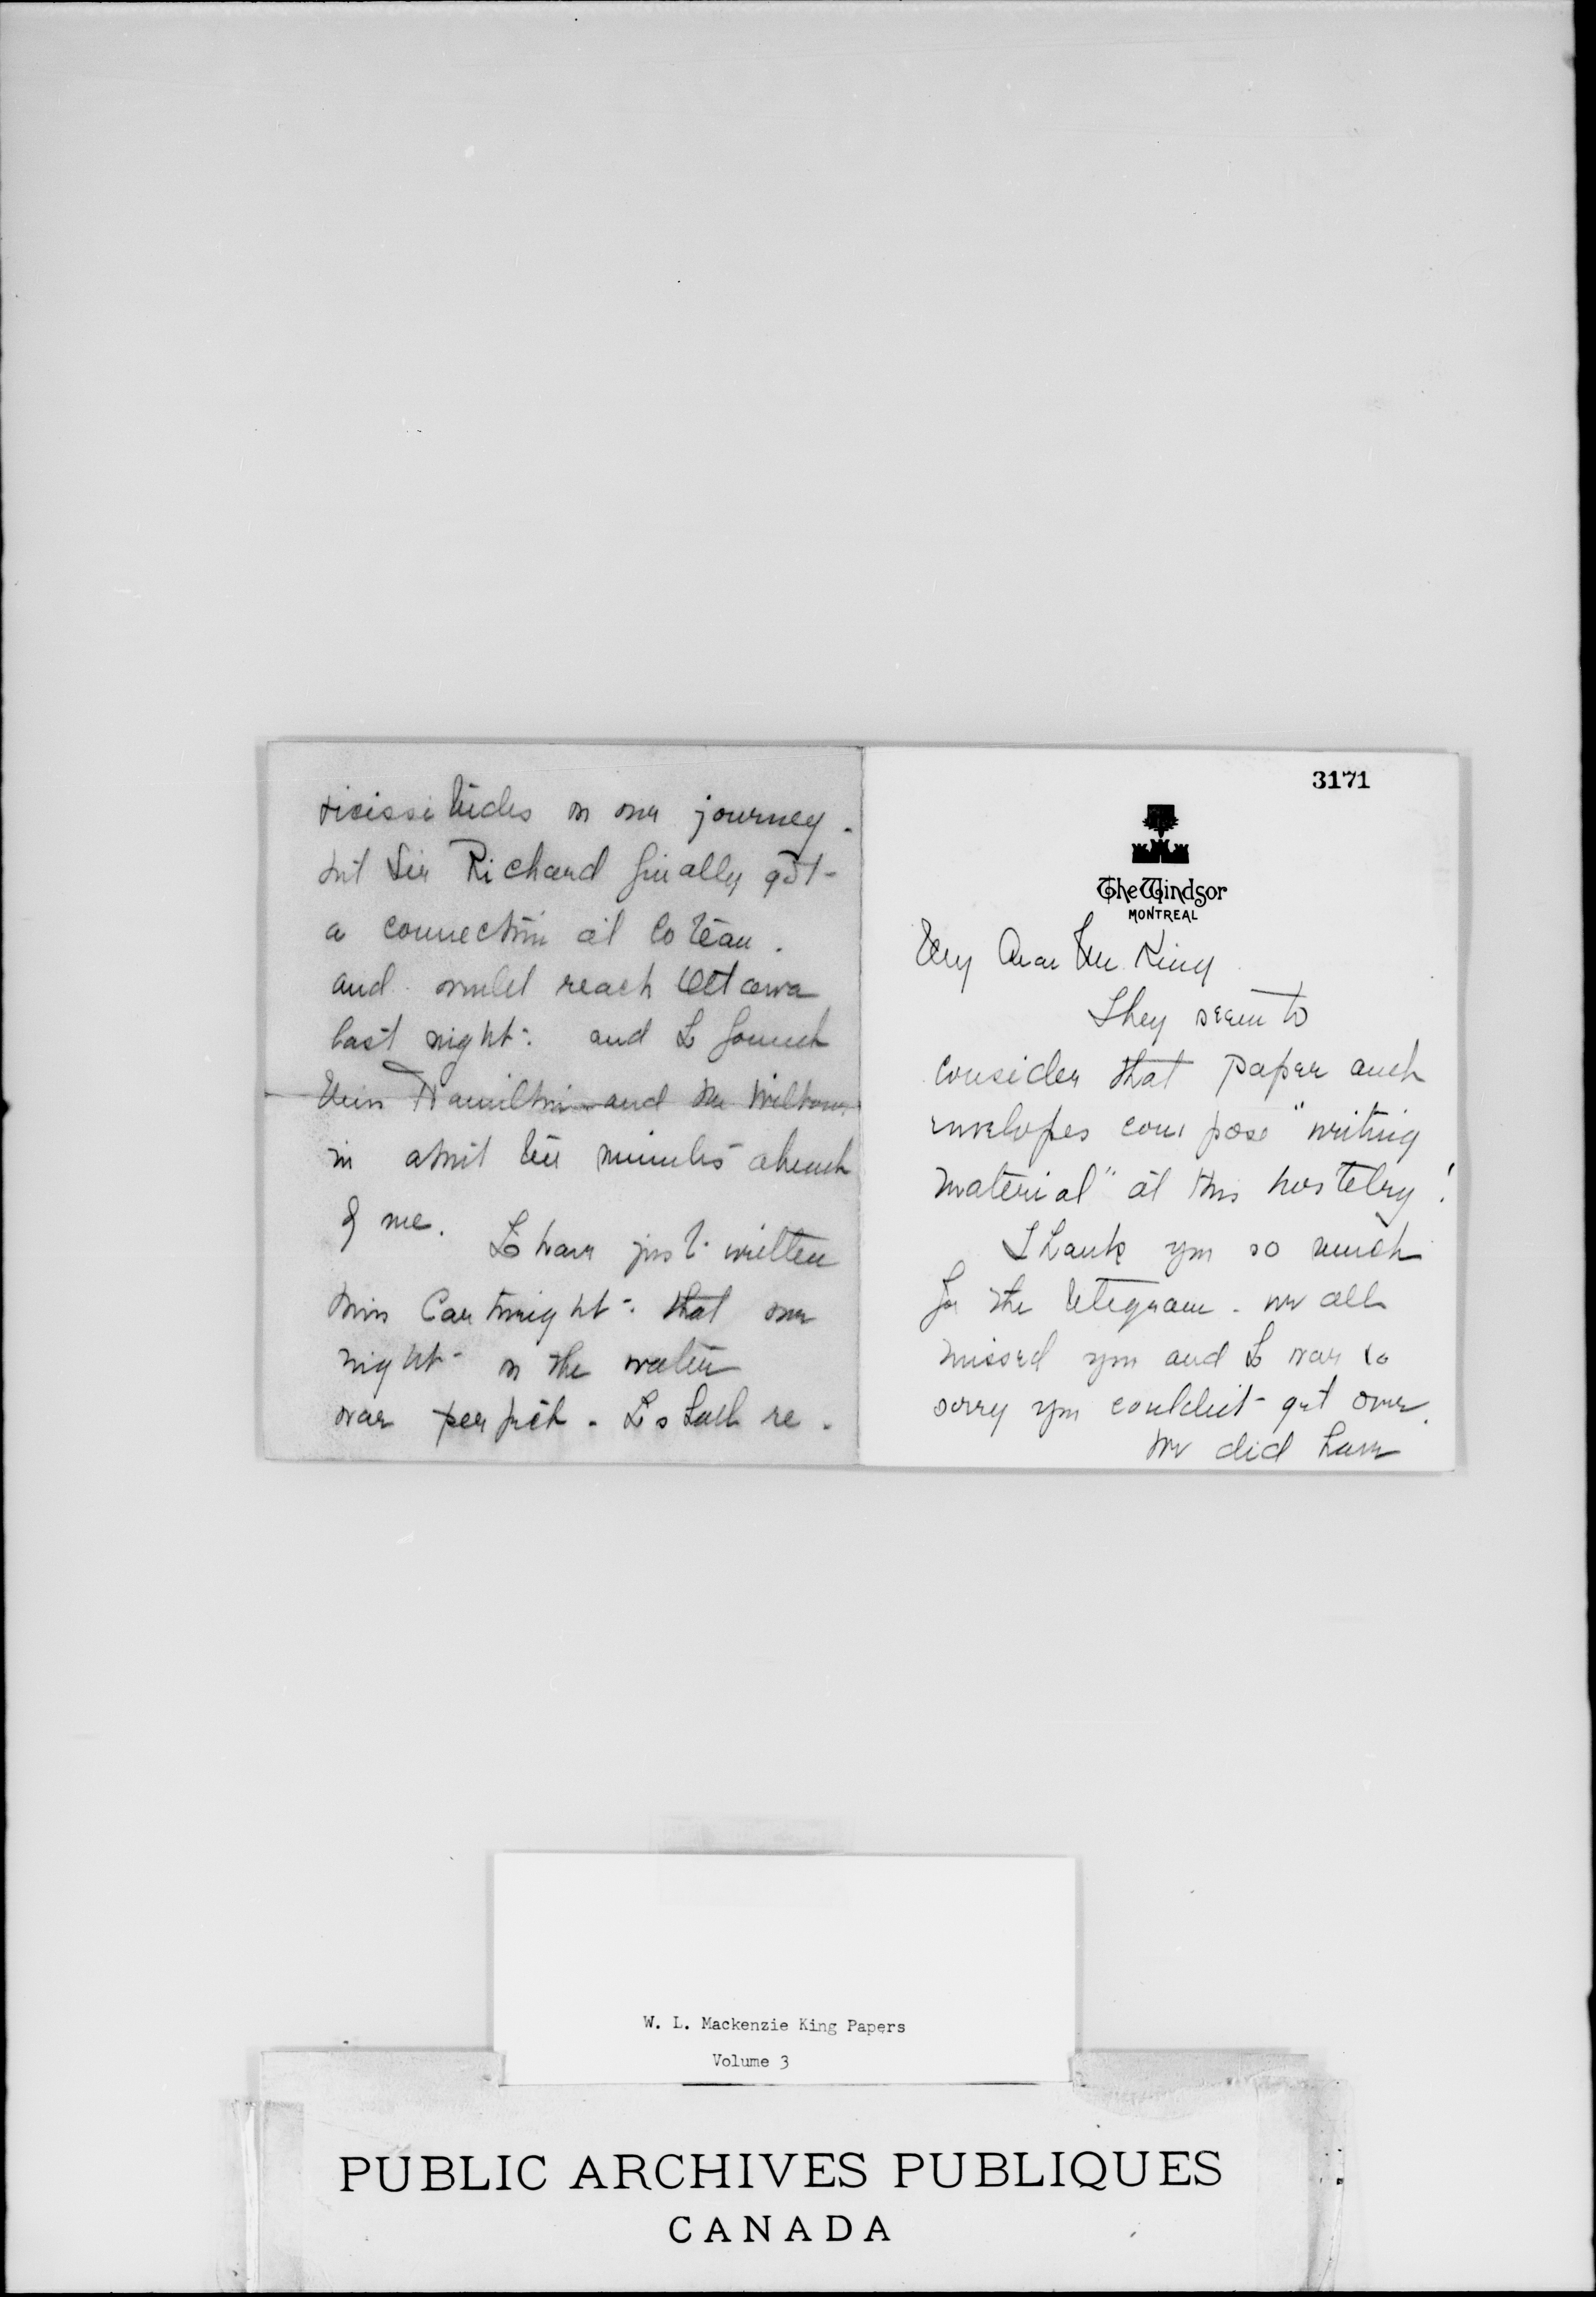 3171
The Windsor
MONTREAL
My dear Mr. King
They seem to
consider that paper and
envelopes compose "writing
material" at this hostelry!
Thank you so much
for the telegram - we all
missed you and I was so
sorry you couldn't get over.
We did have
vicissitudes on our journey.
but Sir Richard finally got
a connection at Coteau.
and would reach Ottawa
last night. and I found
Miss Hamilton and Mr
in about ten minutes ahead
of me. I have just written
Miss Cartwright - that our
night on the water
was perfect. I shall re-
W. L. Mackenzie King Papers
Volume 3
PUBLIC ARCHIVES PUBLIQUES
CANADA